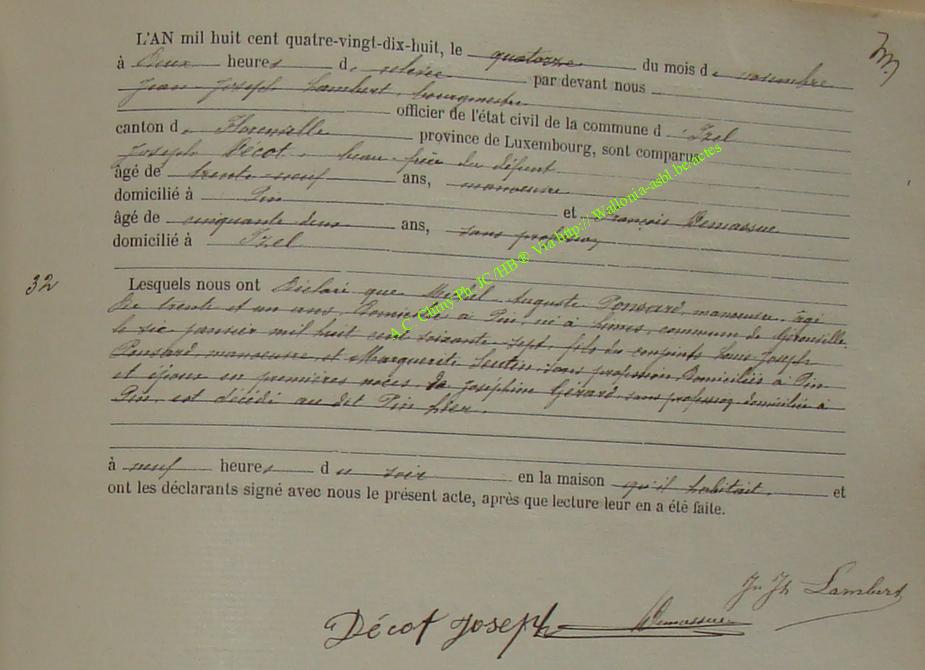 L'AN mil huit cent quatre-vingt-dix-huit, le quatorze du mois de novembre
à Deux heures de relevée par devant nous
Jean Joseph Lambert, bourgmestre
officier de l'état civil de la commune d'Izel
canton de Florenville province de Luxembourg, sont comparus
Joseph Décot, beau frère du défunt
âgé de trente neuf ans, manoeuvre
domicilié à Pin et François Demassue
âgé de cinquante deux ans, sans profession
domicilié à Izel
32
Lesquels nous ont Déclaré que Michel Auguste Ponsard, manoeuvre, âgé
De trente et un ans, Domicilié à Pin, né à commune de
le six janvier mil huit cent soixante sept, fils des conjoints Louis Joseph
Ponsard manoeuvre et Marguerite sans profession Domiciliés à Pin
et époux en premières noces de Joséphine Gérard, sans profession domiciliée à
Pin, est décédé au dit Pin hier.
à neuf heures du soir en la maison qu'il habitait. et
ont les déclarants signé avec nous le présent acte, après que lecture leur en a été faite.
Jn Jh Lambert
Décot Joseph Demassue
A.C. Chiny Ph JC/HB ® Via http://Wallonia-asbl.be/actes